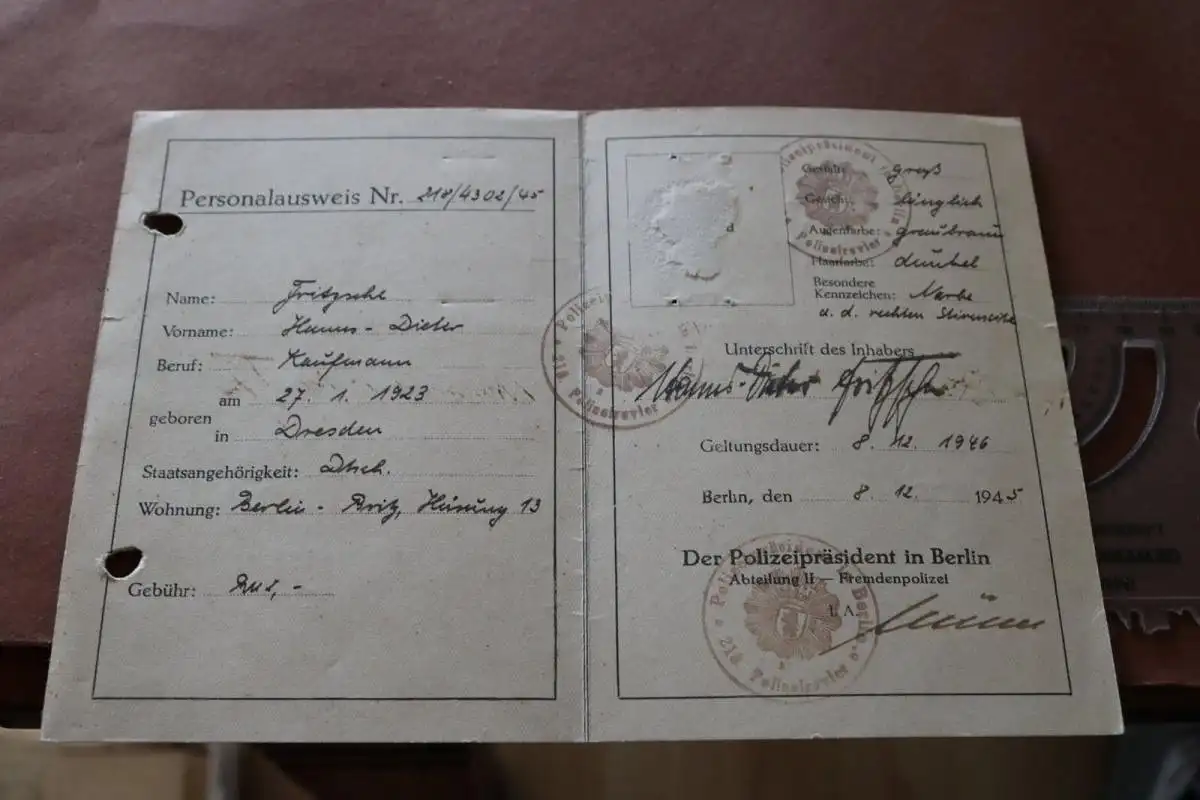 Personalausweis Nr. 218/4302/45
Name: Fritzsche
Vorname: Hanns - Dieter
Beruf: Kaufmann
geboren am 27. 1. 1923
in Dresden
Staatsangehörigkeit: Dtsch.
Wohnung: Berlin - Britz, Hüsung 13
Gebühr:
Gestalt: groß
Gesicht: länglich
Augenfarbe: graubraun
Haarfarbe: dunkel
Besondere
Kennzeichen: Narbe
a. d. rechten Stirnseite
Unterschrift des Inhabers
Hanns-Dieter Fritzsche
Geltungsdauer: 8. 12. 1946
Berlin, den 8. 12. 1945
Der Polizeipräsident in Berlin
Abteilung II — Fremdenpolizei
I. A.
Polizeipräsident Berlin
218 Polizeirevier